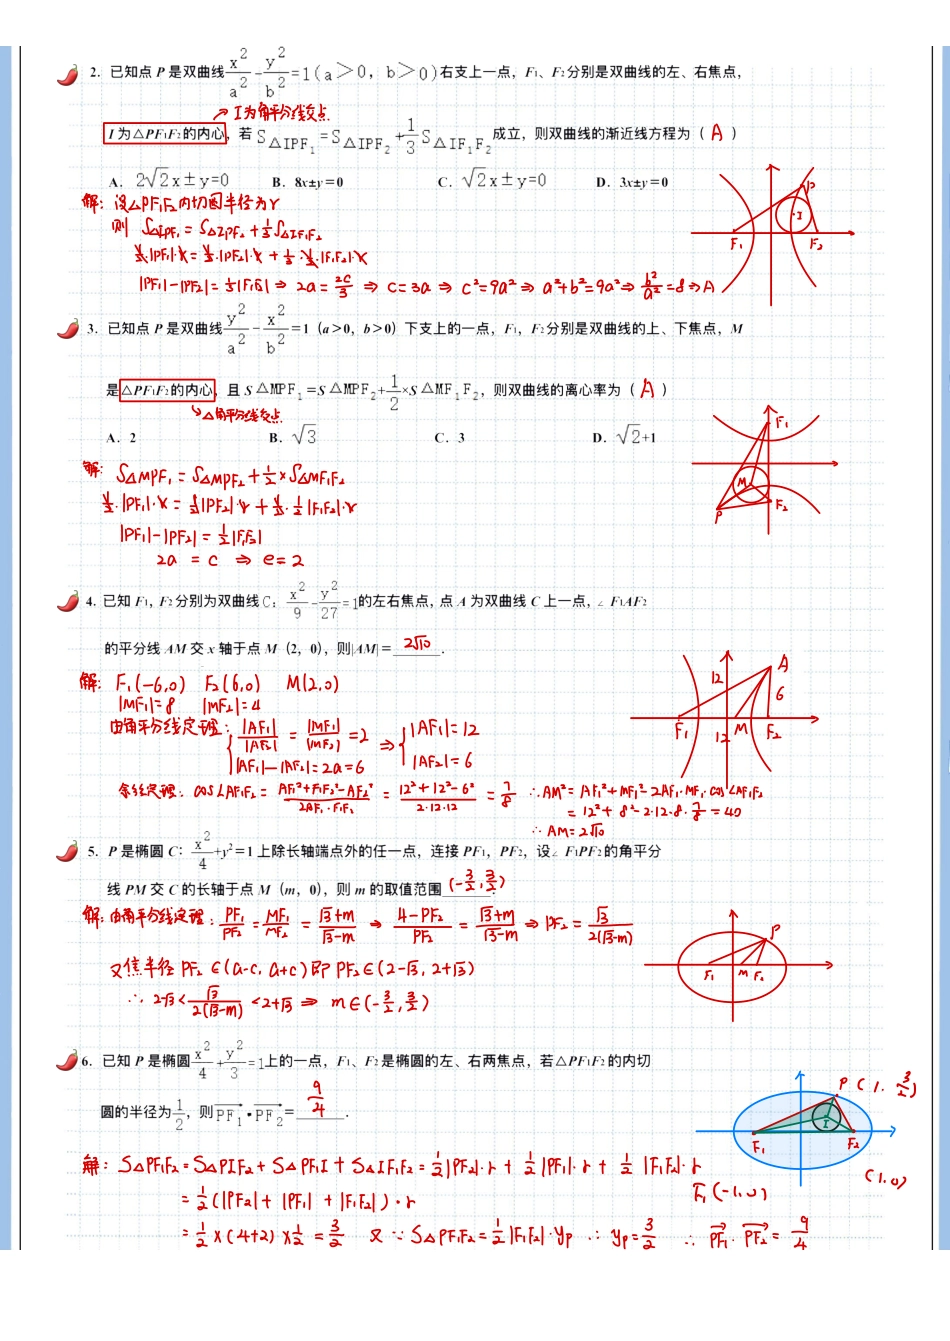 2. 已知点 P 是双曲线 x²/a² − y²/b² =1(a＞0, b＞0)右支上一点，F₁、F₂分别是双曲线的左、右焦点，
→ I为角平分线交点
I 为△PF₁F₂的内心，若 S△IPF₁=S△IPF₂+1/3 S△IF₁F₂ 成立，则双曲线的渐近线方程为（ A ）
A. 2√2x±y=0 B. 8x±y=0 C. √2x±y=0 D. 3x±y=0
解：设△PF₁F₂内切圆半径为r
则 S△IPF₁=S△IPF₂+1/3 S△IF₁F₂
1/2·|PF₁|·r=1/2·|PF₂|·r+1/3·1/2·|F₁F₂|·r
|PF₁|-|PF₂|=1/3|F₁F₂| ⇒ 2a=2c/3 ⇒ c=3a ⇒ c²=9a² ⇒ a²+b²=9a² ⇒ b²/a²=8 ⇒ A
P
I
F₁ F₂
3. 已知点 P 是双曲线 y²/a² − x²/b² =1（a＞0，b＞0）下支上的一点，F₁，F₂分别是双曲线的上、下焦点，M
是△PF₁F₂的内心，且 S△MPF₁=S△MPF₂+1/2×S△MF₁F₂，则双曲线的离心率为（ A ）
↘△角平分线交点
A. 2 B. √3 C. 3 D. √2+1
解：S△MPF₁=S△MPF₂+1/2×S△MF₁F₂
1/2·|PF₁|·r=1/2|PF₂|·r+1/2·1/2|F₁F₂|·r
|PF₁|-|PF₂|=1/2|F₁F₂|
2a = c ⇒ e=2
F₁
M
P F₂
4. 已知 F₁，F₂分别为双曲线C：x²/9 − y²/27 =1的左右焦点，点 A 为双曲线 C 上一点，∠F₁AF₂
的平分线 AM 交 x 轴于点 M（2，0），则|AM|= 2√10 .
解：F₁(-6,0) F₂(6,0) M(2,0)
|MF₁|=8 |MF₂|=4
由角平分线定理：{ |AF₁|/|AF₂| = |MF₁|/|MF₂| =2 ⇒ { |AF₁|=12
|AF₁|-|AF₂|=2a=6 |AF₂|=6
余弦定理：cos∠AF₁F₂= AF₁²+F₁F₂²-AF₂² / 2AF₁·F₁F₂ = 12²+12²-6² / 2·12·12 = 7/8 ∴AM²=AF₁²+MF₁²-2AF₁·MF₁·cos∠AF₁F₂
=12²+8²-2·12·8·7/8=40
∴AM=2√10
A
12
6
F₁ 12 M F₂
5. P 是椭圆 C：x²/4+y²=1 上除长轴端点外的任一点，连接 PF₁，PF₂，设∠F₁PF₂的角平分
线 PM 交 C 的长轴于点 M（m，0），则 m 的取值范围 (-3/2,3/2) .
解：由角平分线定理：PF₁/PF₂ = MF₁/MF₂ = √3+m/√3-m ⇒ 4-PF₂/PF₂ = √3+m/√3-m ⇒ PF₂= √3/2(√3-m)
又焦半径PF₂∈(a-c, a+c)即PF₂∈(2-√3, 2+√3)
∴ 2-√3< √3/2(√3-m) <2+√3 ⇒ m∈(-3/2,3/2)
P
F₁ M F₂
6. 已知 P 是椭圆 x²/4+y²/3=1上的一点，F₁、F₂是椭圆的左、右两焦点，若△PF₁F₂的内切
圆的半径为1/2，则PF₁→·PF₂→= 9/4 .
P(1, 3/2)
I
F₁ F₂
(1,0)
F₁(-1,0)
解：S△PF₁F₂=S△PIF₂+S△PF₁I+S△IF₁F₂=1/2|PF₂|·r+1/2|PF₁|·r+1/2|F₁F₂|·r
=1/2(|PF₂|+|PF₁|+|F₁F₂|)·r
=1/2×(4+2)×1/2=3/2 又∵S△PF₁F₂=1/2|F₁F₂|·yp ∴yp=3/2 ∴PF₁→·PF₂→=9/4